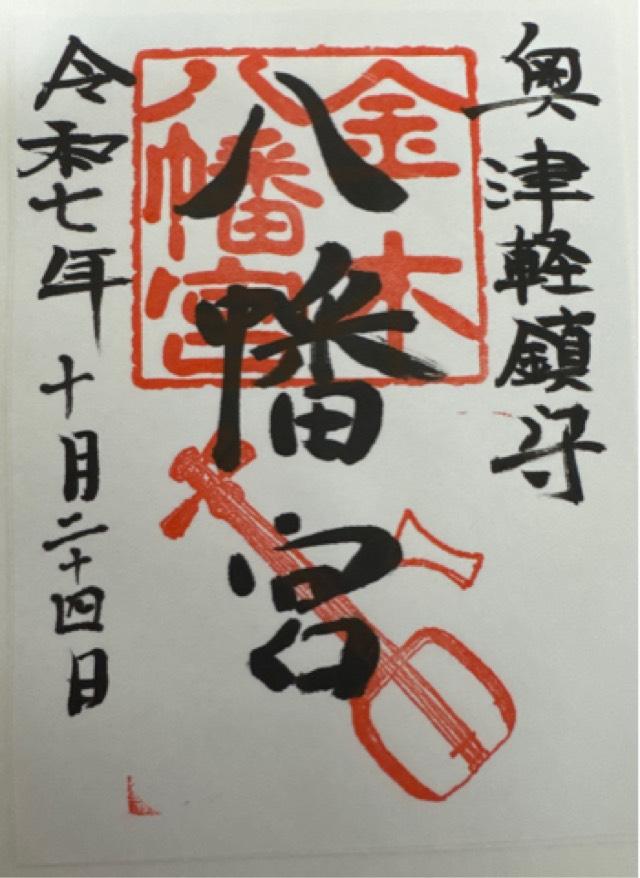 奥津軽鎮守
八幡宮
金木
八幡宮
令和七年十月二十四日